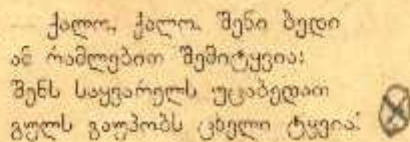 ქალო, ქალო, შენი ბედი
ამ რამლებით შემიტყვია:
შენს საყვარელს უცაბედათ
გულს გაუპობს ცხელი ტყვია!